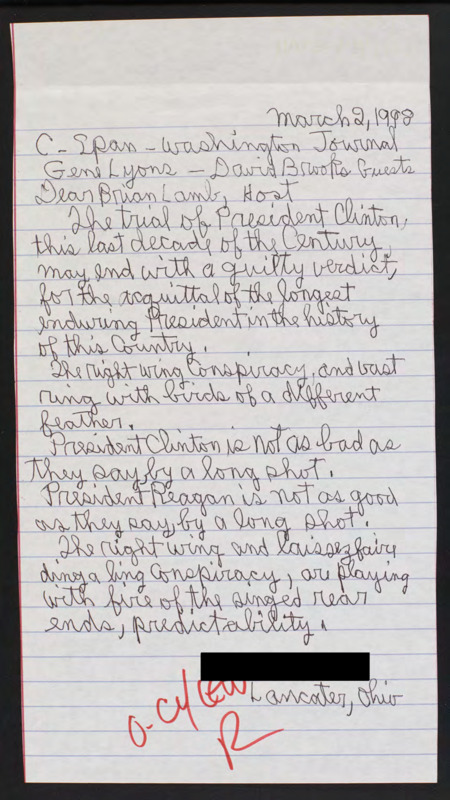 March 2, 1998
C-Span - Washington Journal
Gene Lyons - David Brooks Guests
Dear Brian Lamb, Host
The trial of President Clinton,
this last decade of the Century,
may end with a guilty verdict,
for the acquittal of the longest
enduring President in the history
of this Country.
The right wing Conspiracy, and vast
ring with birds of a different
feather.
President Clinton is not as bad as
they say, by a long shot.
President Reagan is not as good
as they say, by a long shot.
The right wing and laissez faire
ding a ling Conspiracy, are playing
with fire of the singed rear
ends, predictability.
Lancaster, Ohio
R